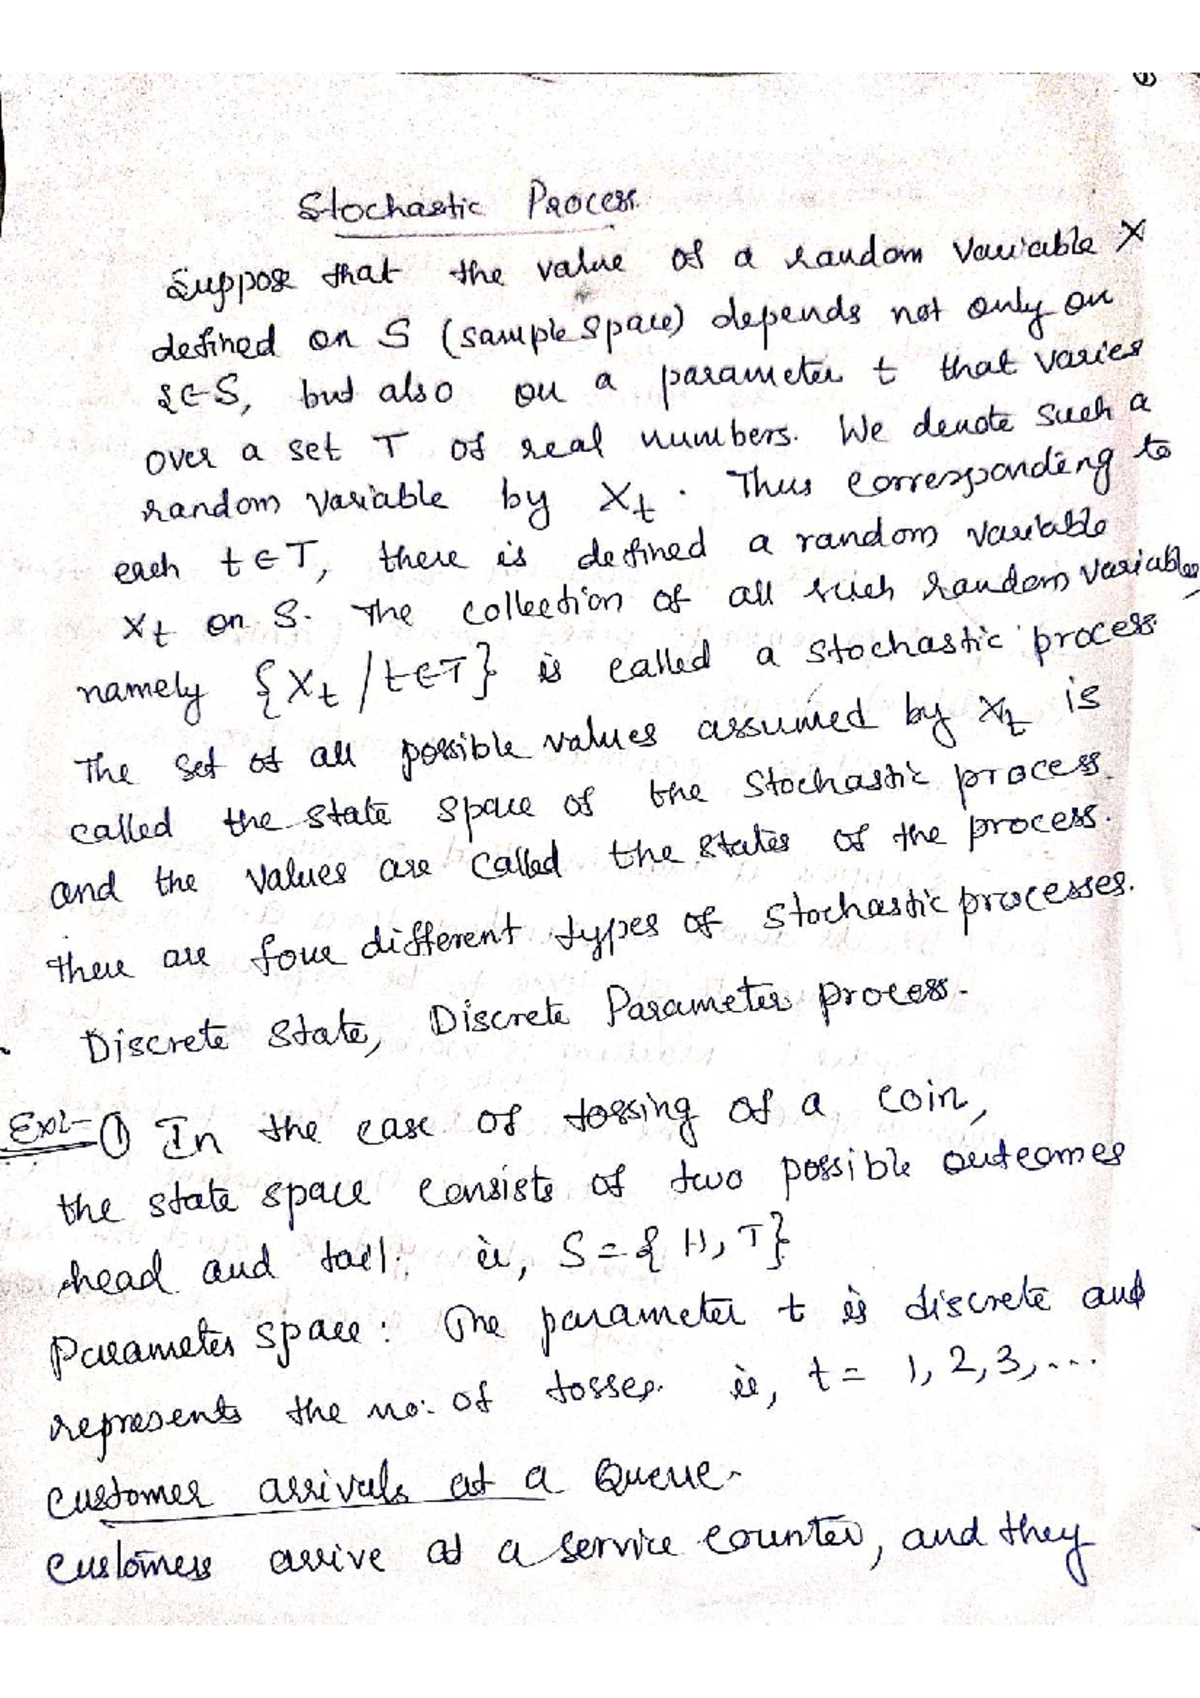 Stochastic Process.
Suppose that the value of a random variable X
defined on S (sample space) depends not only on
ξ∈S, but also on a parameter t that varies
over a set T of real numbers. We denote such a
random variable by Xt. Thus corresponding to
each t∈T, there is defined a random variable
Xt on S. The collection of all such random variables,
namely {Xt / t∈T} is called a stochastic process.
The set of all possible values assumed by Xt is
called the state space of the stochastic process.
and the values are called the states of the process.
There are four different types of stochastic processes.
Discrete State, Discrete Parameter process.
Ex:- ① In the case of tossing of a coin,
the state space consists of two possible outcomes
head and tail. ie, S = { H, T}
Parameter space: The parameter t is discrete and
represents the no: of tosses. ie, t = 1, 2, 3, ...
Customer arrivals at a Queue.
Customers arrive at a service counter, and they